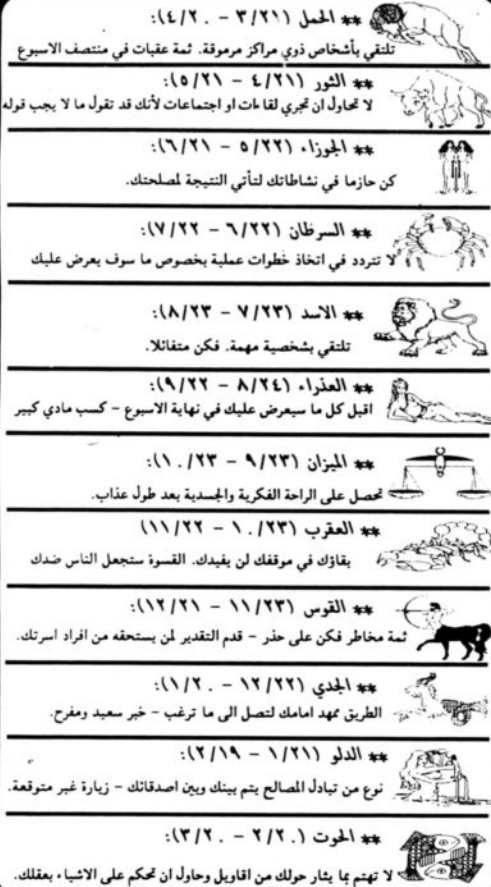 ** الحمل (٣/٢١ - ٤/٢٠):
تلتقي بأشخاص ذوي مراكز مرموقة. ثمة عقبات في منتصف الاسبوع
** الثور (٤/٢١ - ٥/٢١):
لا تحاول ان تجري لقاءات او اجتماعات لأنك قد تقول ما لا يجب قوله
** الجوزاء (٥/٢٢ - ٦/٢١):
كن حازما في نشاطاتك لتأتي النتيجة لمصلحتك.
** السرطان (٦/٢٢ - ٧/٢٢):
لا تتردد في اتخاذ خطوات عملية بخصوص ما سوف يعرض عليك
** الاسد (٧/٢٣ - ٨/٢٣):
تلتقي بشخصية مهمة. فكن متفائلا.
** العذراء (٨/٢٤ - ٩/٢٢):
اقبل كل ما سيعرض عليك في نهاية الاسبوع - كسب مادي كبير
** الميزان (٩/٢٣ - ١٠/٢٣):
تحصل على الراحة الفكرية والجسدية بعد طول عذاب.
** العقرب (١٠/٢٣ - ١١/٢٢)
بقاؤك في موقفك لن يفيدك. القسوة ستجعل الناس ضدك
** القوس (١١/٢٣ - ١٢/٢١):
ثمة مخاطر فكن على حذر - قدم التقدير لمن يستحقه من افراد اسرتك.
** الجدي (١٢/٢٢ - ١/٢٠):
الطريق ممهد امامك لتصل الى ما ترغب - خبر سعيد ومفرح.
** الدلو (١/٢١ - ٢/١٩):
نوع من تبادل المصالح يتم بينك وبين اصدقائك - زيارة غير متوقعة.
** الحوت (٢/٢٠ - ٣/٢٠):
لا تهتم بما يثار حولك من اقاويل وحاول ان تحكم على الاشياء بعقلك.